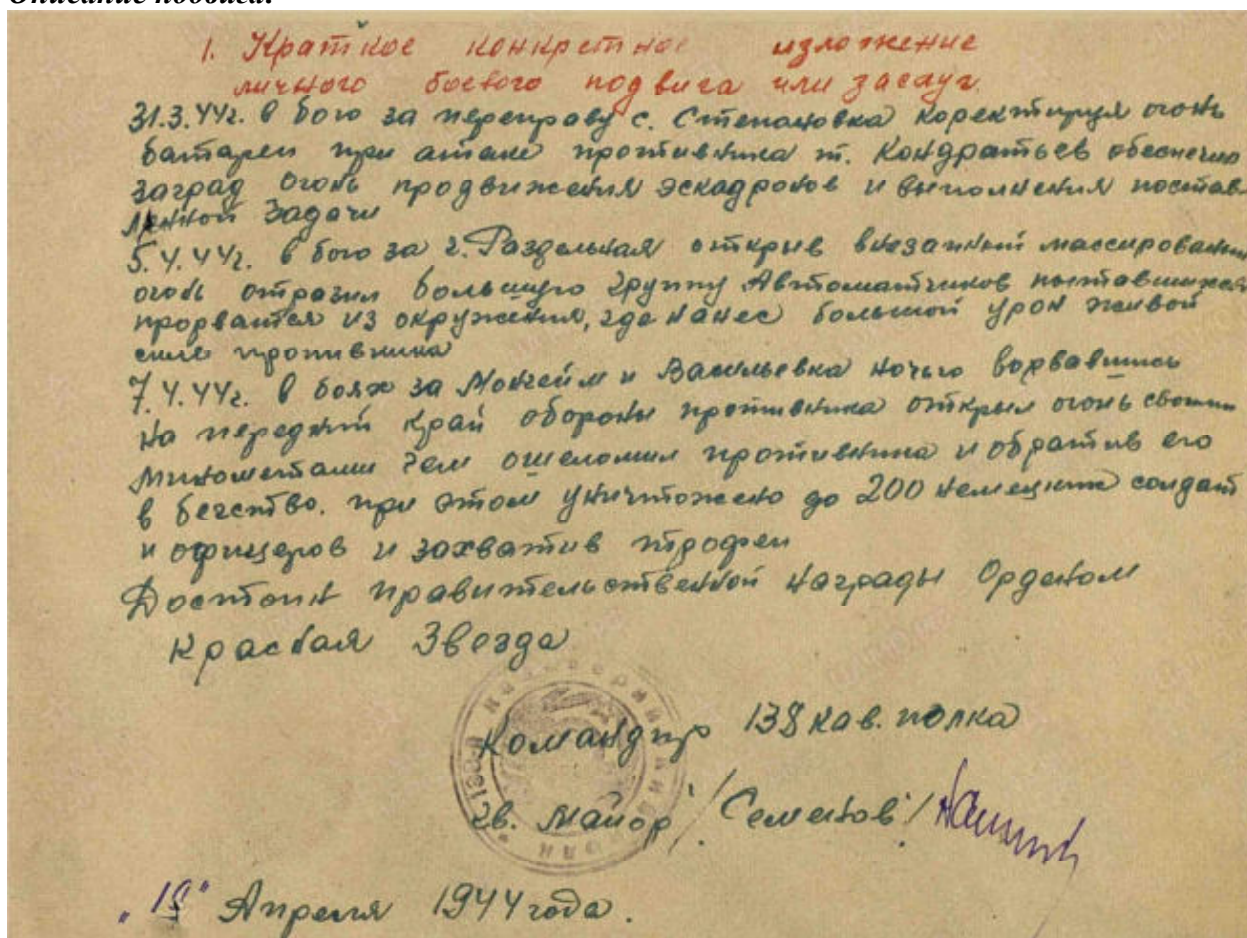 Описание подвига:
1. Краткое конкретное изложение
личного боевого подвига или заслуг.
31.3.44г. в бою за переправу с. Степановка коректируя огонь
батареи при атаке противника т. Кондратьев обеспечил
заград огонь продвижения эскадронов и выполнения постав-
ленной задачи
5.4.44г. в бою за г. Раздельная открыв внезапный массированный
огонь отразил большую группу Автоматчиков пытавшихся
прорватся из окружения, где нанес большой урон живой
силе противника
7.4.44г. в боях за Мангейм и Васильевка ночью ворвавшись
на передний край обороны противника открыл огонь своими
минометами чем ошеломил противника и обратив его
в бегство. при этом уничтожено до 200 немецких солдат
и офицеров и захватив трофеи
Достоин правительственной награды Орденом
Красная Звезда
Командир 138 кав. полка
гв. Майор /Семенов/
"18" Апреля 1944 года.